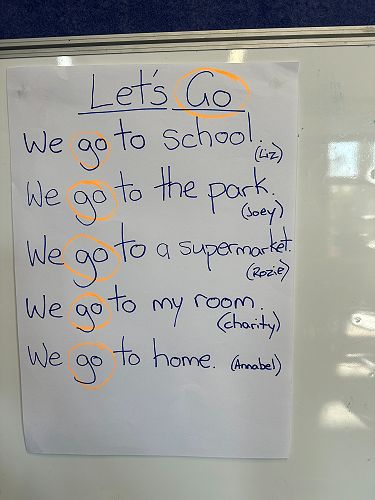 Let's Go
We go to school.
(Liz)
We go to the park.
(Joey)
We go to a supermarket.
(Rozie)
We go to my room.
(charity)
We go to home. (Annabel)